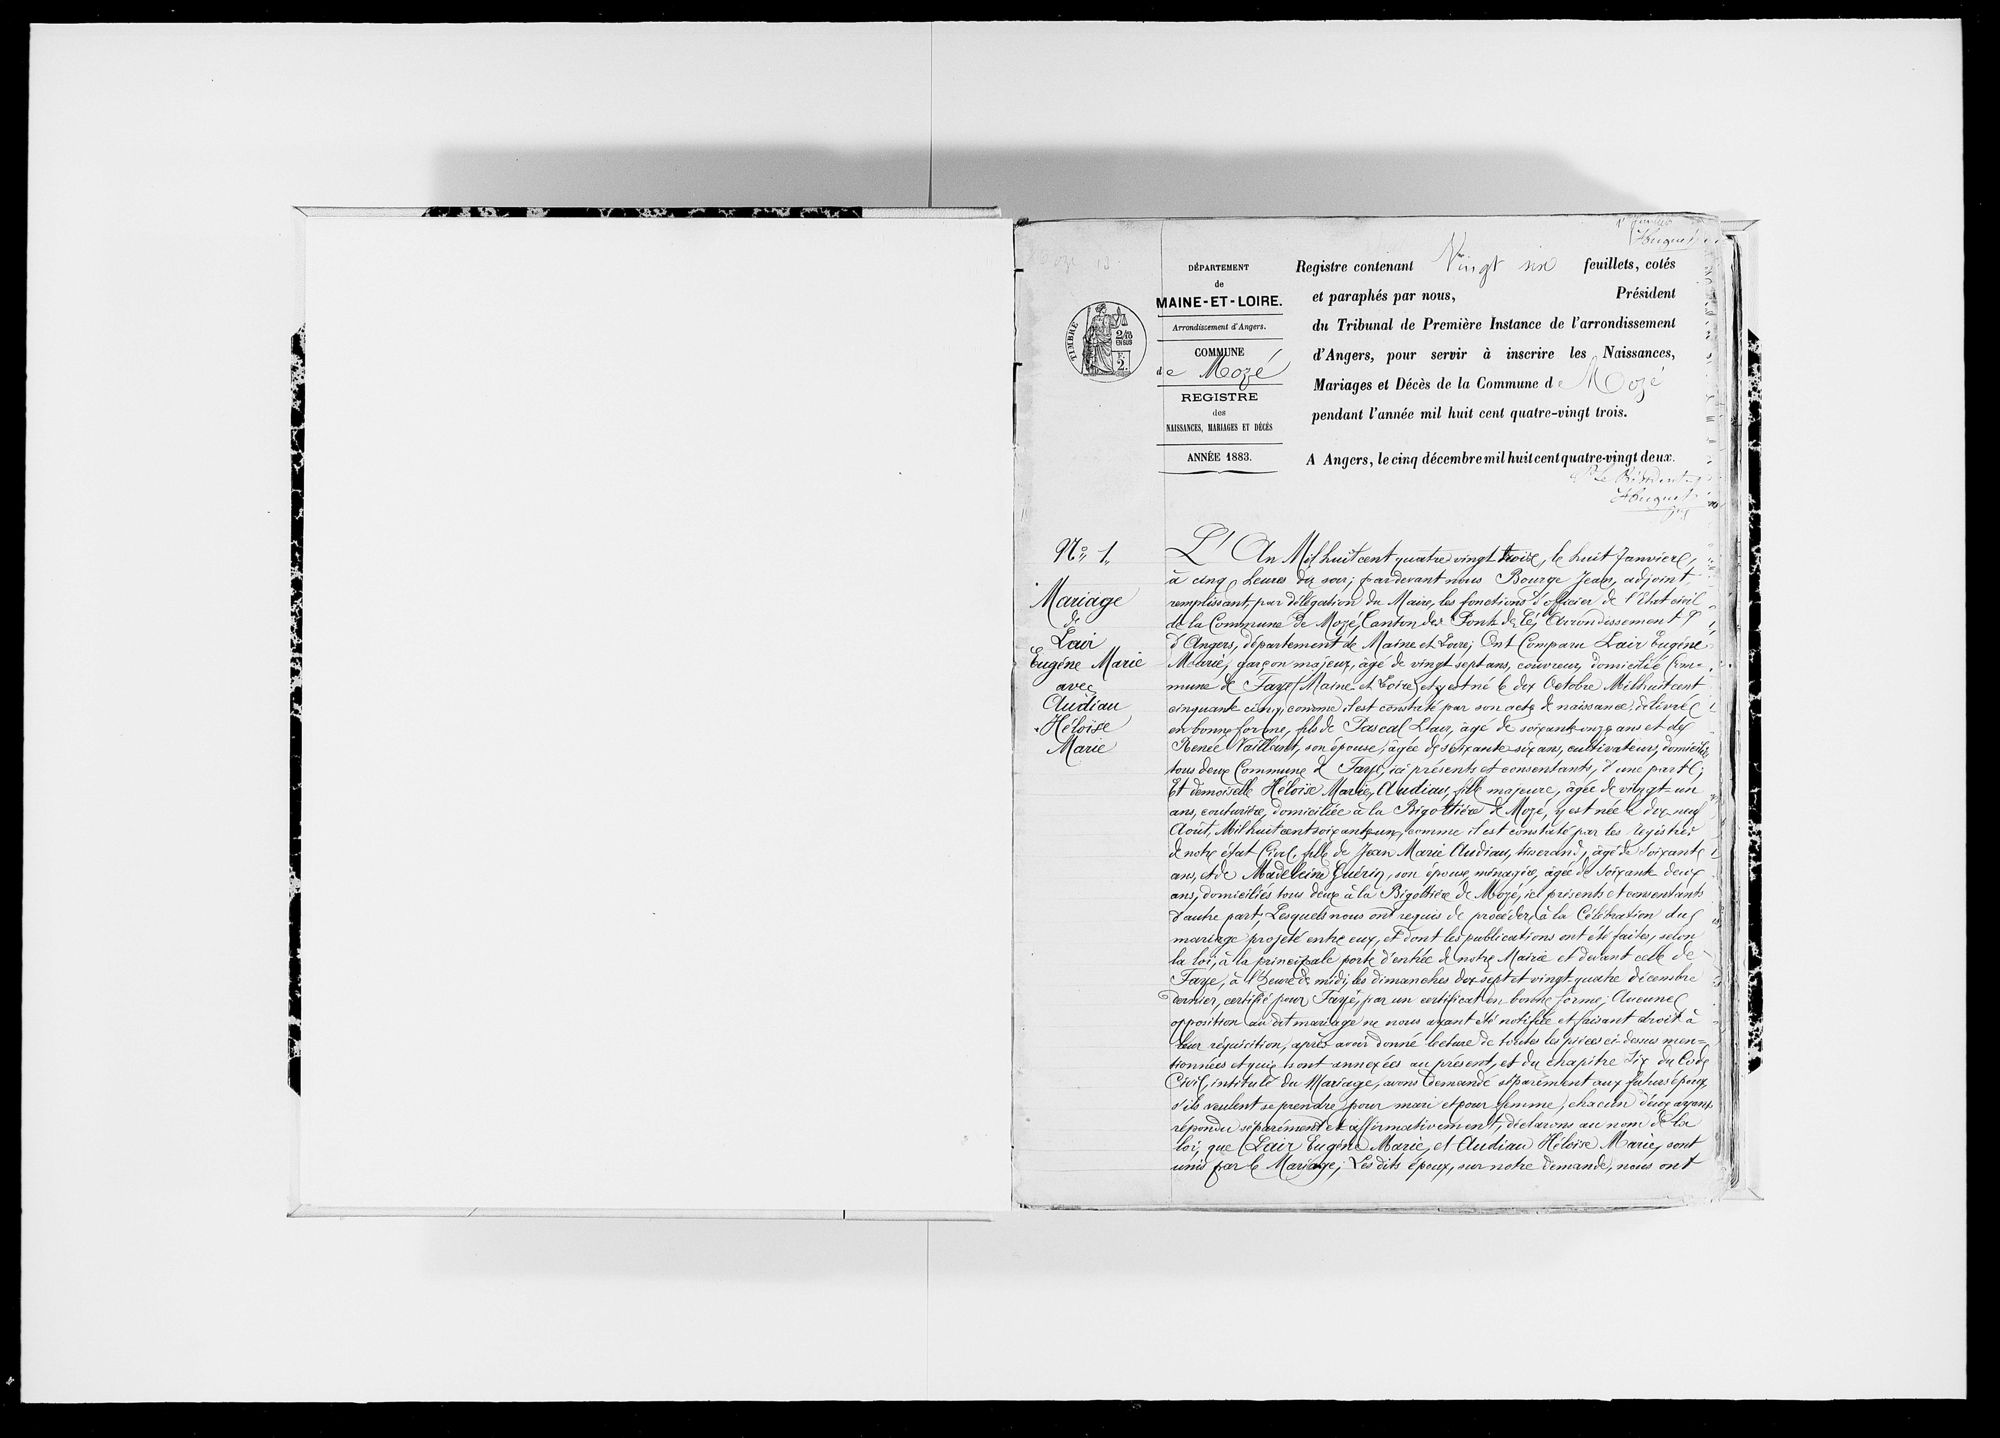 DÉPARTEMENT
de
MAINE-ET-LOIRE.
Arrondissement d'Angers.
COMMUNE
de Mozé
REGISTRE
des
NAISSANCES, MARIAGES ET DÉCÈS
ANNÉE 1883.
TIMBRE
2/10
EN SUS
2.
Registre contenant Vingt six feuillets, cotés
et paraphés par nous, Président
du Tribunal de Première Instance de l'arrondissement
d'Angers, pour servir à inscrire les Naissances,
Mariages et Décès de la Commune de Mozé
pendant l'année mil huit cent quatre-vingt trois.
A Angers, le cinq décembre mil huit cent quatre-vingt deux.
Pr le Président
N° 1
Mariage
de
Lair
Eugéne Marie
avec
Audiau
Héloïse
Marie
L'An Mil huit cent quatre vingt trois, le huit Janvier,
à cinq heures du soir; par devant nous Bourge Jean, adjoint
remplissant, par délégation du Maire, les fonctions d'officier de l'Etat civil
de la Commune de Mozé, Canton des Ponts de Cé, Arrondissement
d'Angers, département de Maine et Loire; Ont Comparu Lair Eugéne
Marie, garçon majeur, âgé de vingt sept ans, couvreur, domicilié Com=
mune de Faye (Maine et Loire) et y est né le dix Octobre Mil huit cent
cinquante cinq, comme il est constaté par son acte de naissance délivré
en bonne forme, fils de Pascal Lair, âgé de soixante onze ans et de
Renée Vaillant, son épouse, âgée de soixante six ans, cultivateurs, domiciliés
tous deux Commune de Faye, ici présents et consentants, d'une part;
Et demoiselle Héloïse Marie Audiau, fille majeure, âgée de vingt=un
ans, couturière, domiciliée à la Bigottière de Mozé, y est née le dix neuf
Août, Mil huit cent soixante un, comme il est constaté par les registres
de notre état Civil, fille de Jean Marie Audiau, tisserand, âgé de Soixante
ans, et de Madeleine Guérin, son épouse ménagère, âgée de Soixante deux
ans, domiciliés tous deux à la Bigottière de Mozé, ici présents et consentants
d'autre part; Lesquels nous ont requis de procéder à la Célébration du
mariage projeté entre eux, et dont les publications ont été faites, selon
la loi, à la principale porte d'entrée de notre Mairie et devant celle de
Faye, à l'heure de midi, les dimanches dix-sept et vingt-quatre décembre
dernier, certifié pour Faye, par un certificat en bonne forme; Aucune
opposition au dit mariage ne nous ayant été notifiée et faisant droit à
leur réquisition, après avoir donné lecture de toutes les pièces ci-dessus men=
tionnées et qui sont annexées au présent, et du chapitre Six du Code
Civil, intitulé du Mariage, avons demandé séparément aux futurs époux
s'ils veulent se prendre pour mari et pour femme, chacun d'eux ayant
répondu séparément et affirmativement, déclarons au nom de la
loi, que Lair Eugéne Marie, et Audiau Héloïse Marie, sont
unis par le Mariage; Les dits époux, sur notre demande, nous ont